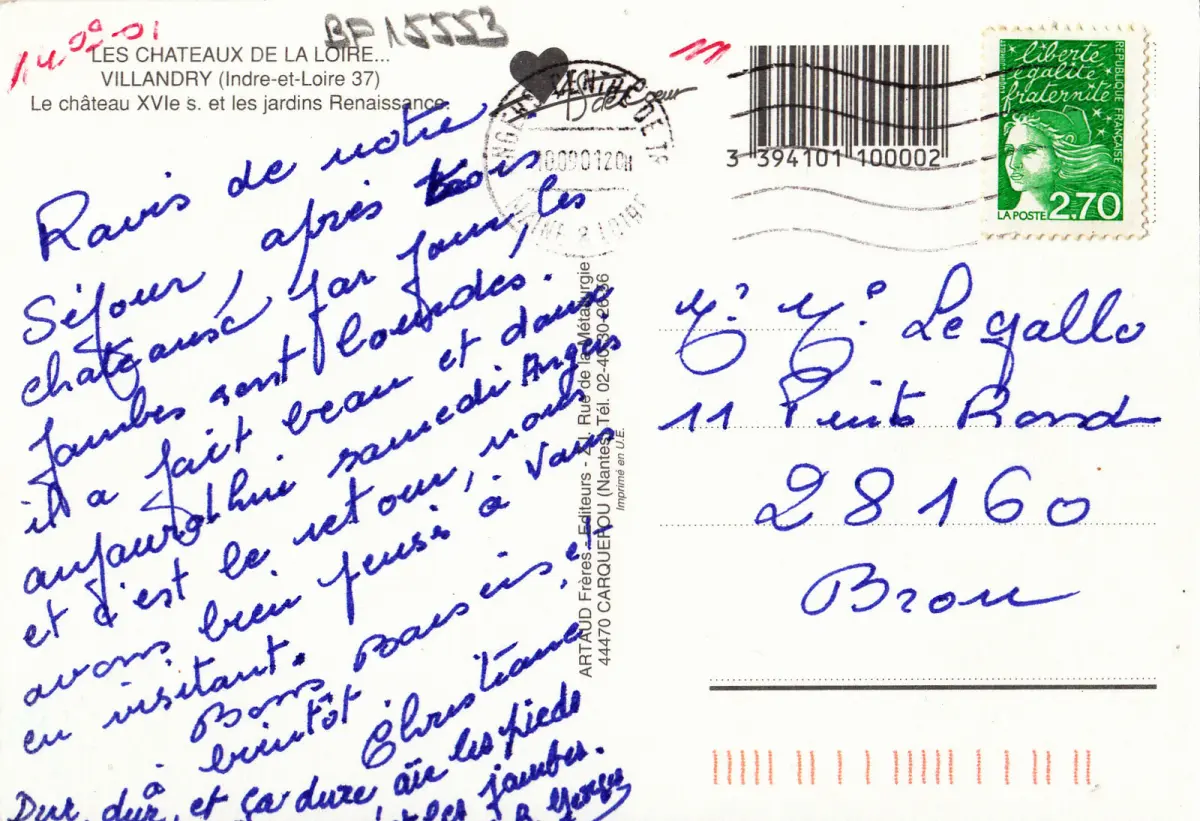 14.09.01
BF 15553
LES CHATEAUX DE LA LOIRE...
VILLANDRY (Indre-et-Loire 37)
Le château XVIe s. et les jardins Renaissance.
Ravis de notre
Séjour, après trois
chateaux par jour, les
Jambes sont lourdes.
il a fait beau et doux
aujourd'hui samedi Angers
et c'est le retour, nous
avons bien pensé à vous
en visitant.
Bons Baisers et
à bientôt
Christiane
Dur, dur, et ça dure aïe les pieds
et les jambes.
Georges
ARTAUD Frères - Editeurs - Z.I. Rue de la Métallurgie
44470 CARQUEFOU (Nantes) Tél. 02-40-30-26-56
Imprimé en U.E.
3 394101 100002
liberté
égalité
fraternité
REPUBLIQUE FRANÇAISE
LA POSTE 2,70
Mr Me Le gallo
11 Puits Rond
28160
Brou